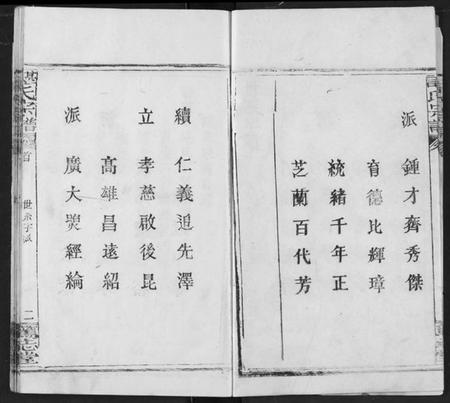 氏宗譜
派 鍾才齊秀傑
育德比輝璋
統緒千年正
芝蘭百代芳
續 仁義追先澤
立 孝慈啟後昆
高雄昌遠紹
派 廣大經綸
氏宗譜 首 世系字派 二